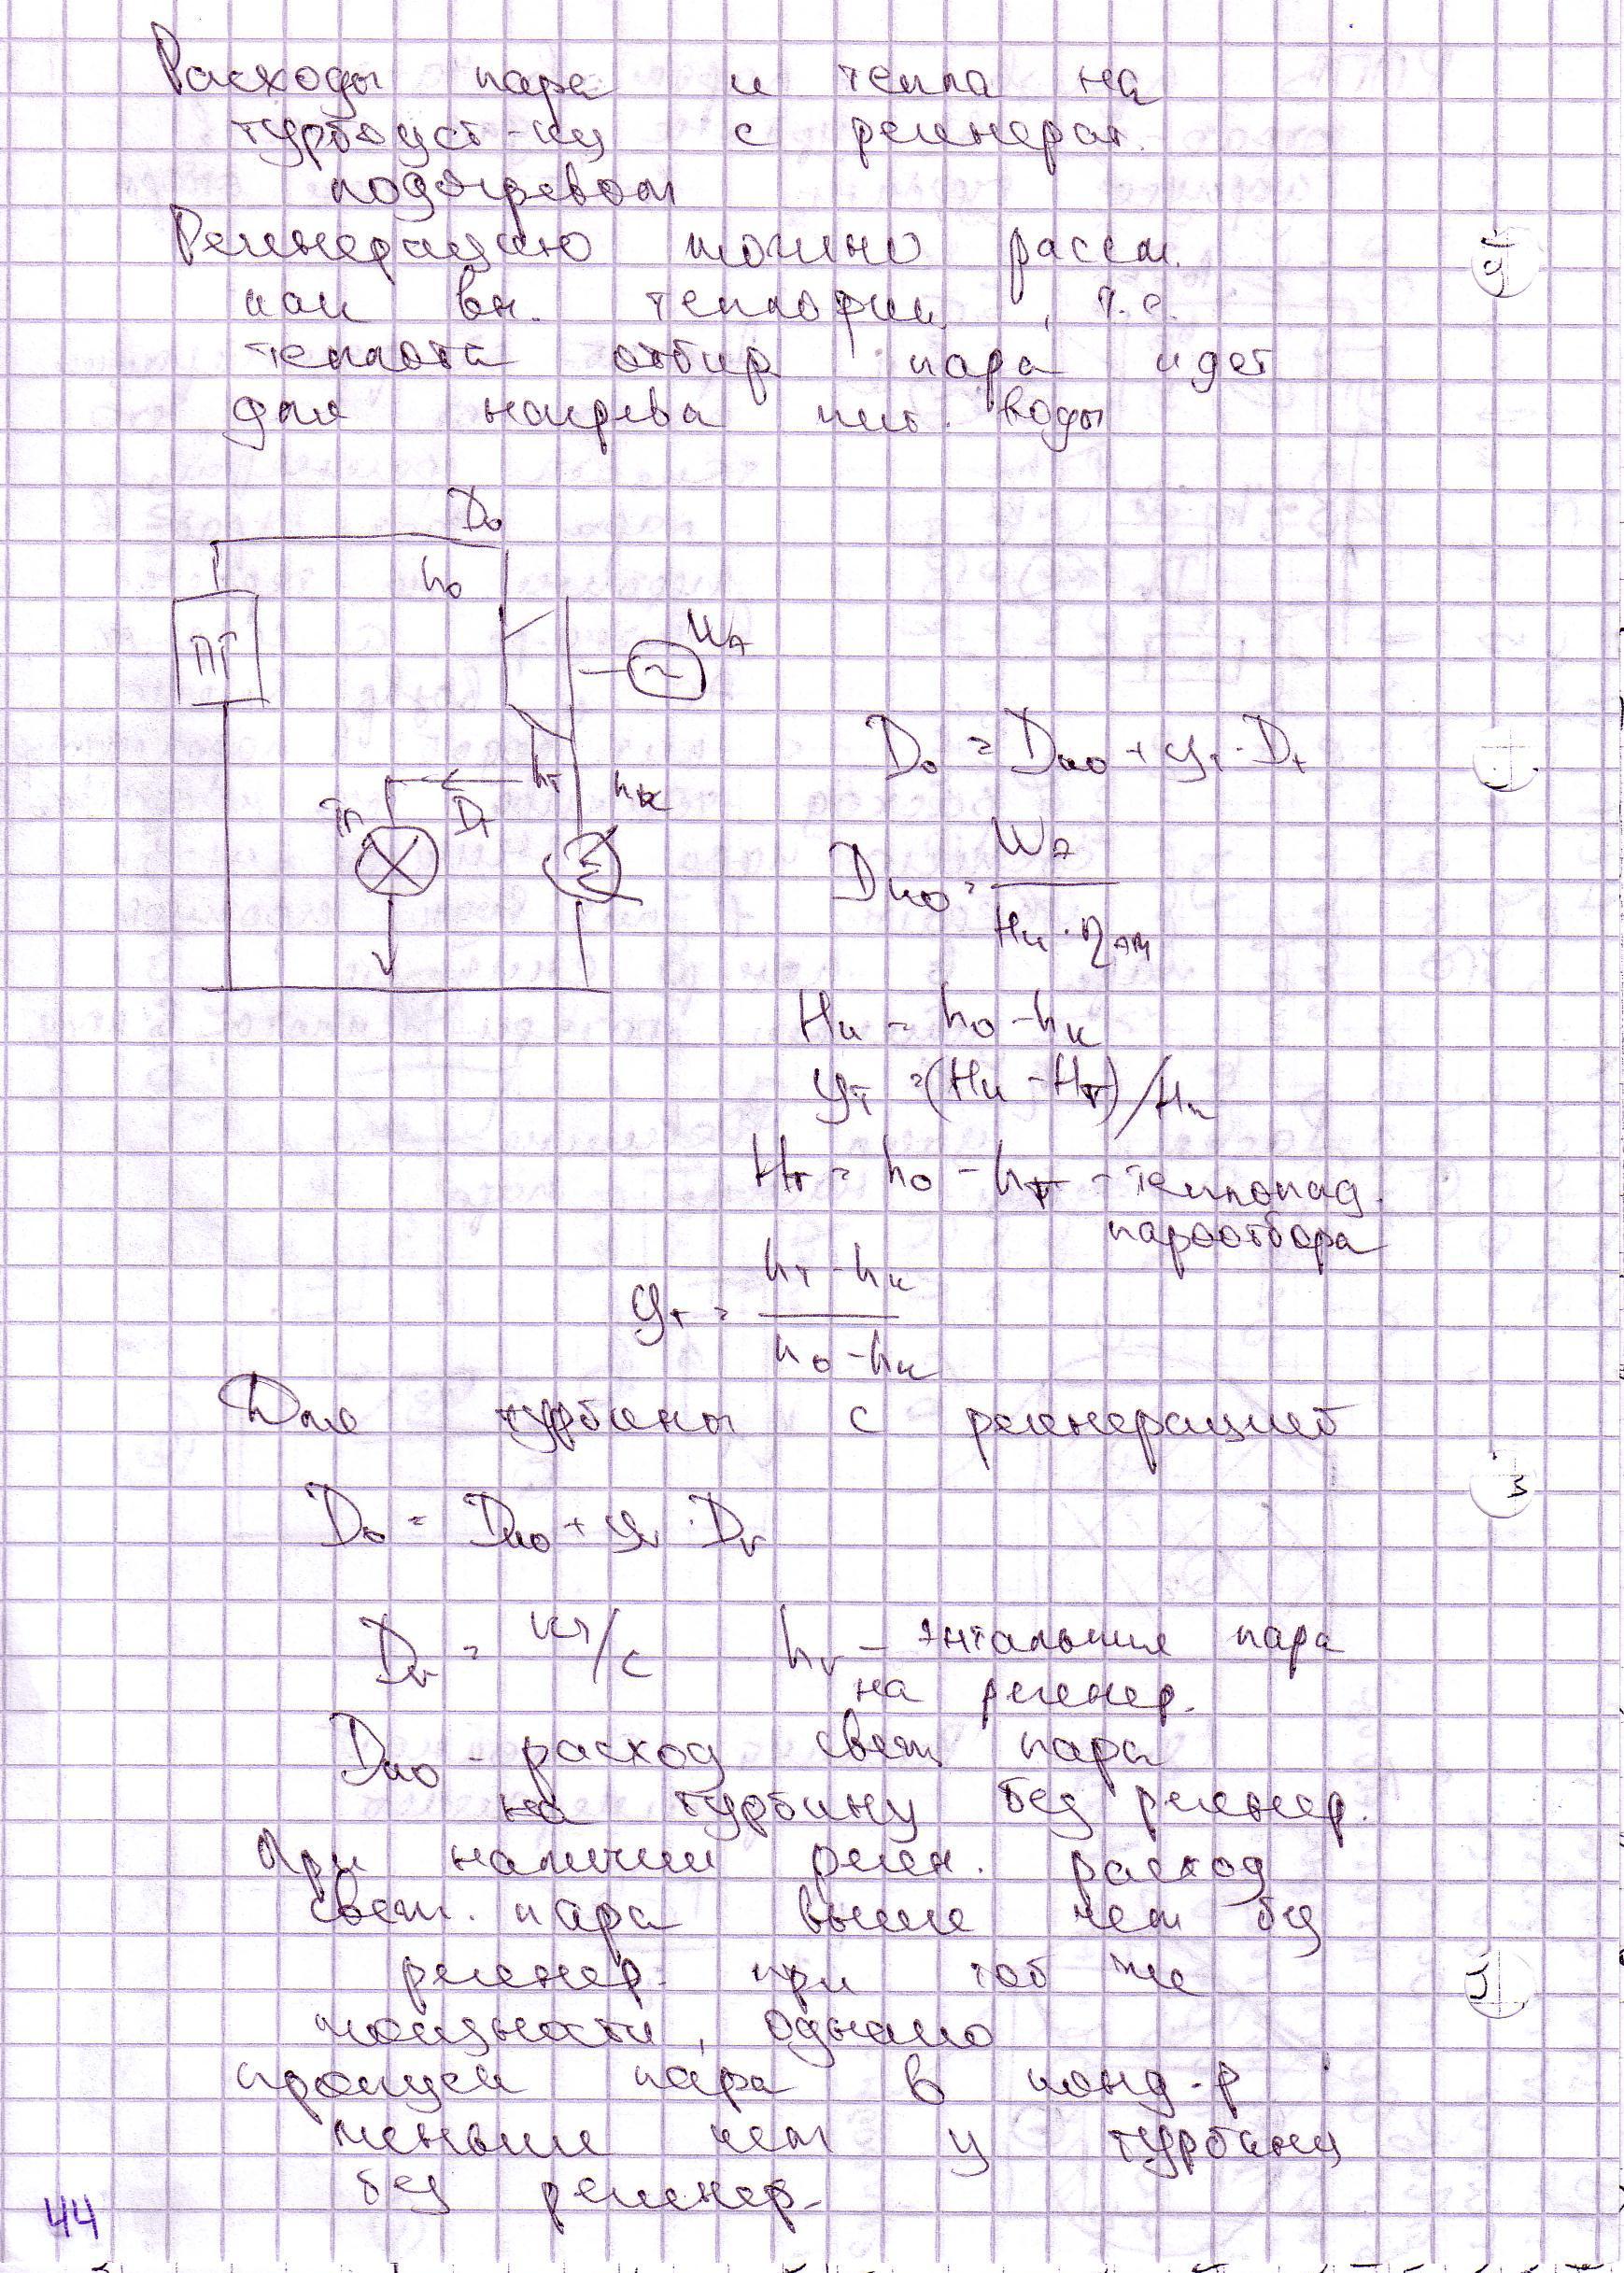 Расходы пара и тепла на
турбоуст-ку с регенерат.
подогревом
Регенерацию можно рассм.
как вн. теплофик, т.е.
теплота отбир пара идет
для нагрева пит. воды
D₀
h₀
ПГ
Wэ
hт
hк
Dт
D₀ = Dко + yт · Dт
Dко = Wэ / Hи · ηэм
Hи = h₀ - hк
yт = (Hи - Hт) / Hи
Hт = h₀ - hт - теплопад.
пароотбора
yт = hт - hк / h₀ - hк
Для турбины с регенерацией
D₀ = Dко + yr · Dr
Dr = кг/с hr - энтальпия пара
на регенер.
Dко - расход свеж пара
на турбину без регенер.
При наличии реген. расход
свеж. пара выше чем без
регенер. при той же
мощности, однако
пропуск пара в конд-р
меньше чем у турбины
без регенер.
44